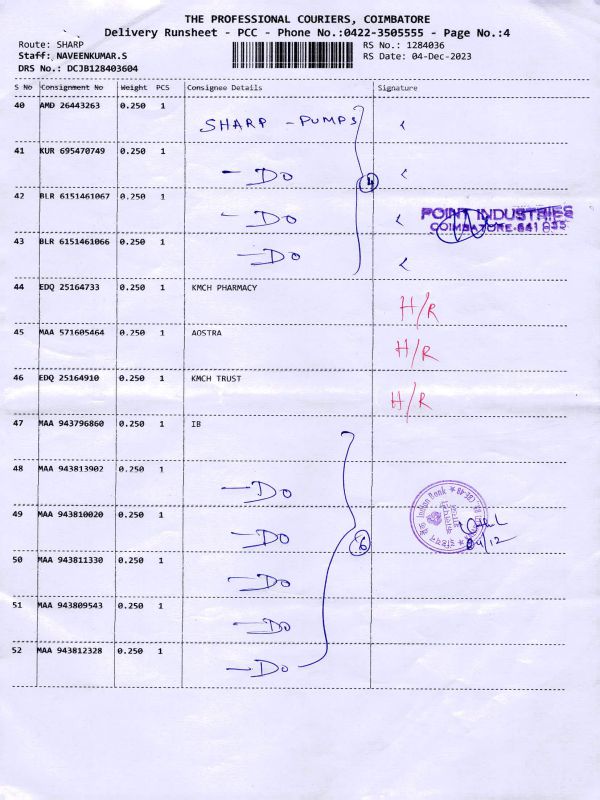 THE PROFESSIONAL COURIERS, COIMBATORE
Delivery Runsheet - PCC - Phone No.:0422-3505555 - Page No.:4
Route: SHARP RS No.: 1284036
Staff: NAVEENKUMAR.S RS Date: 04-Dec-2023
DRS No.: DCJB128403604
S No Consignment No Weight PCS Consignee Details Signature
40 AMD 26443263 0.250 1 SHARP - PUMPS
41 KUR 695470749 0.250 1 - Do
4
42 BLR 6151461067 0.250 1 - Do
POINT INDUSTRIES
COIMBATORE-641 035
43 BLR 6151461066 0.250 1 - Do
44 EDQ 25164733 0.250 1 KMCH PHARMACY H/R
45 MAA 571605464 0.250 1 AOSTRA H/R
46 EDQ 25164910 0.250 1 KMCH TRUST H/R
47 MAA 943796860 0.250 1 IB
48 MAA 943813902 0.250 1 - Do
Indian Bank
49 MAA 943810020 0.250 1 - Do
6
04/12
50 MAA 943811330 0.250 1 - Do
51 MAA 943809543 0.250 1 - Do
52 MAA 943812328 0.250 1 - Do